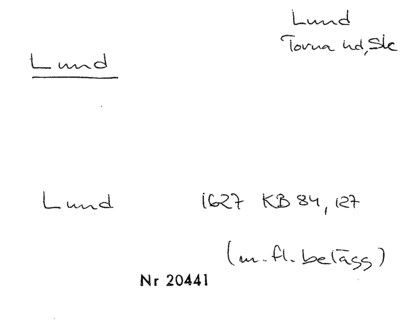 Lund
Torna hd, Sk
Lund
Lund 1627 KB 84, 127
(m.fl. belägg)
Nr 20441